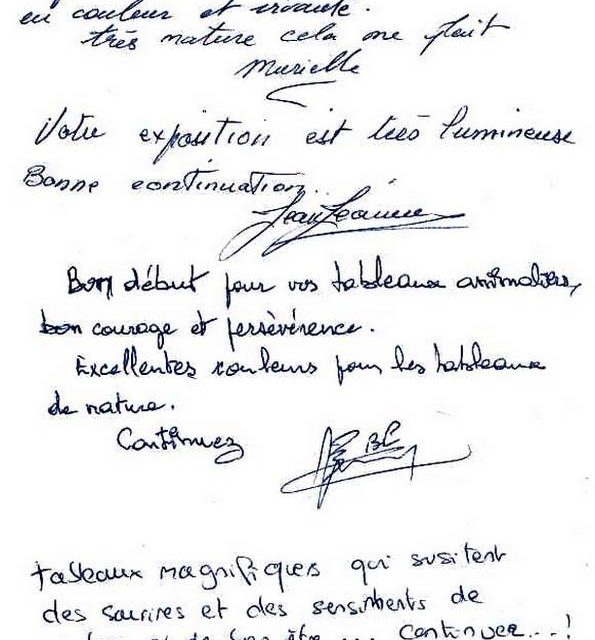 en couleur et
très nature cela me plait
Murielle
Votre exposition est très lumineuse
Bonne continuation..
Bon début pour vos tableaux animaliers,
bon courage et persèvérence.
Excellentes couleurs pour les tableaux
de nature.
Continuez
BC
tableaux magnifiques qui susitent
des sourires et des sentiments de
et de bien être ... continuez...!